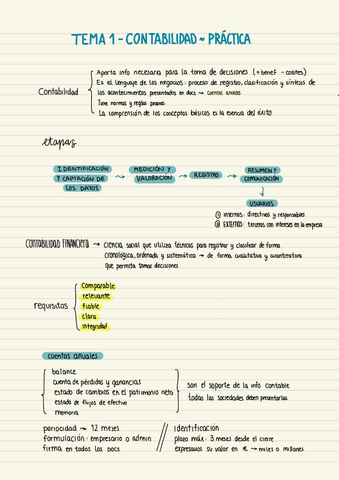 TEMA 1 - CONTABILIDAD ~ PRÁCTICA
Contabilidad
Aporta info necesaria para la toma de decisiones (+ benef - costes)
Es el lenguaje de los negocios: proceso de registro, clasificación y síntesis de
los acontecimientos presentados en docs → cuentas anuales
Tiene normas y reglas propias
La comprensión de los conceptos básicos es la esencia del éxito
etapas
IDENTIFICACIÓN
Y CAPTACIÓN DE
LOS DATOS
MEDICIÓN Y
VALORACIÓN
REGISTRO
RESUMEN Y
COMUNICACIÓN
USUARIOS
internos: directivos y responsables
EXTERNOS: terceros con intereses en la empresa
CONTABILIDAD FINANCIERA → Ciencia social que utiliza técnicas para registrar y clasificar de forma
cronológica, ordenada y sistemática → de forma cualitativa y cuantitativa
que permita tomar decisiones
requisitos
Comparable
relevante
fiable
clara
integridad
cuentas anuales
balance
cuenta de pérdidas y ganancias
estado de cambios en el patrimonio neto
estado de flujos de efectivo
memoria
Son el soporte de la info contable
todas las sociedades deben presentarlas
periocidad → 12 meses
formulación: empresario o admin
firma en todos los docs
Identificación
plazo máx: 3 meses desde el cierre
expresamos su valor en € → miles o millones